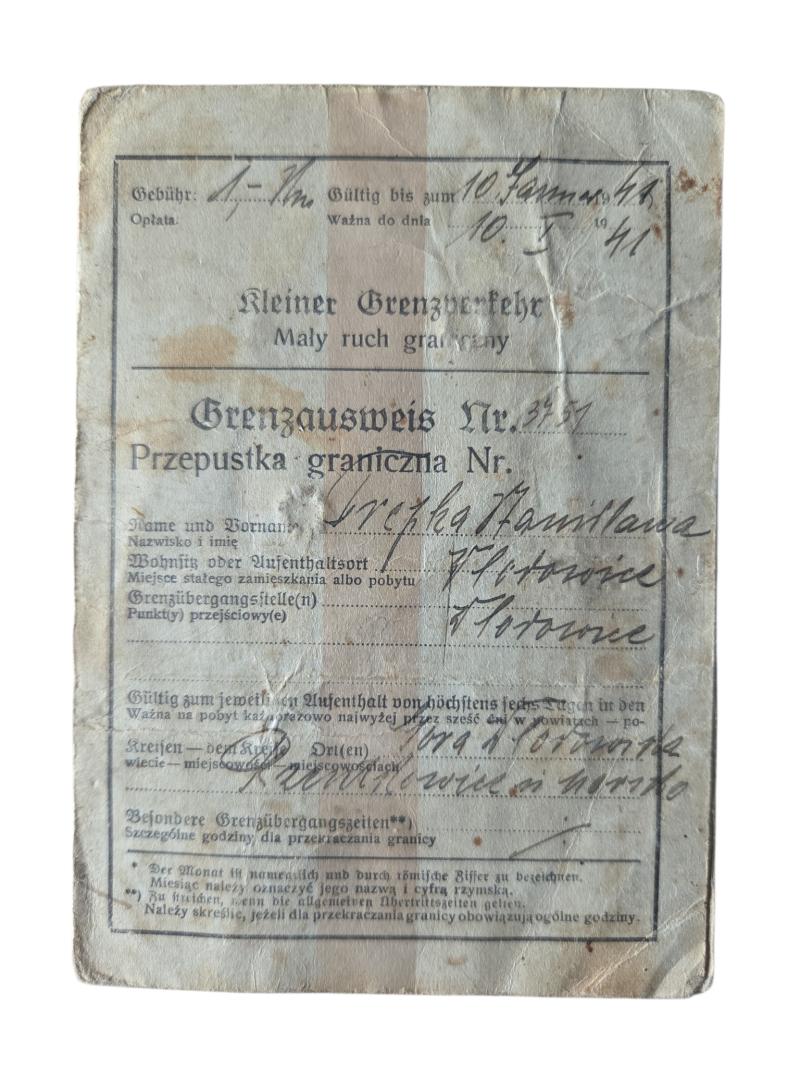 Gebühr: 1,- Gültig bis zum 10 Januar 1941
Opłata: Ważna do dnia 10. I 1941
Kleiner Grenzverkehr
Mały ruch graniczny
Grenzausweis Nr. 3751
Przepustka graniczna Nr.
Name und Vorname Stanisława
Nazwisko i imię
Wohnsitz oder Aufenthaltsort Włodowice
Miejsce stałego zamięszkania albo pobytu
Grenzübergangsstelle(n) Włodowice
Punkt(y) przejściowy(e)
Gültig zum jeweiligen Aufenthalt von höchstens sechs Tagen in den
Ważna na pobyt każdorazowo najwyżej przez sześć dni w powiatach — po-
Kreisen — dem Kreise Ort(en) Góra Włodowska
wiecie — miejscowości — miejscowościach
Besondere Grenzübergangszeiten**)
Szczególne godziny dla przekraczania granicy
* Der Monat ist namentlich und durch römische Ziffer zu bezeichnen.
Miesiąc należy oznaczyć jego nazwą i cyfrą rzymską.
**) Zu streichen, wenn die allgemeinen Übertrittszeiten gelten.
Należy skreślić, jeżeli dla przekraczania granicy obowiązują ogólne godziny.